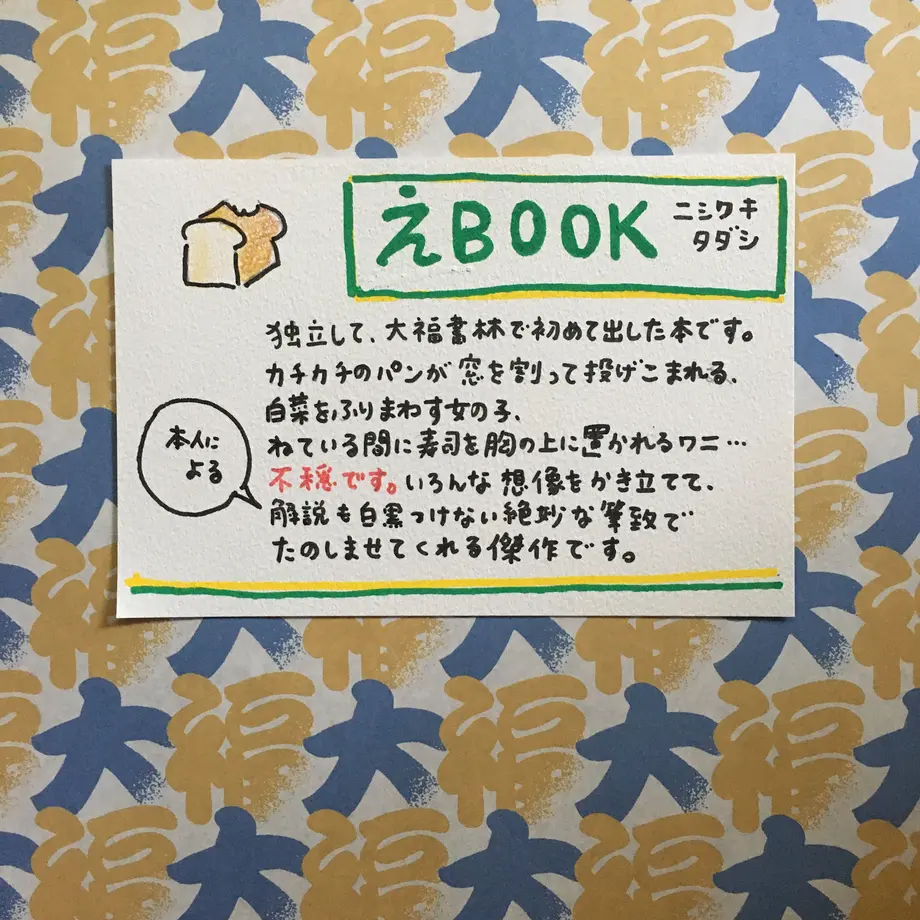 えBOOK
ニシワキ
タダシ
独立して、大福書林で初めて出した本です。
カチカチのパンが窓を割って投げこまれる、
白菜をふりまわす女の子、
ねている間に寿司を胸の上に置かれるワニ…
不穏です。いろんな想像をかき立てて、
本人に
よる
解説も白黒つけない絶妙な筆致で
たのしませてくれる傑作です。
大福